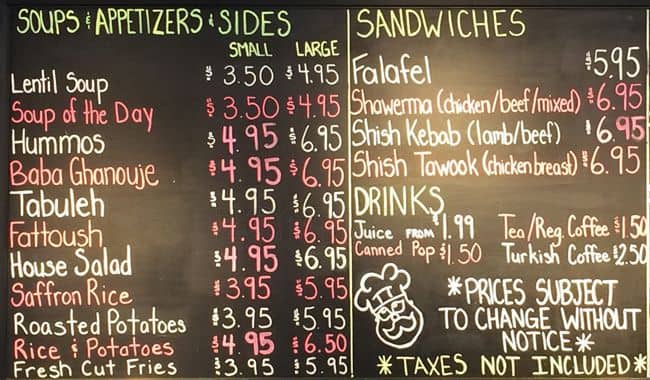 SOUPS & APPETIZERS & SIDES
SMALL LARGE
Lentil Soup $3.50 $4.95
Soup of the Day $3.50 $4.95
Hummos $4.95 $6.95
Baba Ghanouje $4.95 $6.95
Tabuleh $4.95 $6.95
Fattoush $4.95 $6.95
House Salad $4.95 $6.95
Saffron Rice $3.95 $5.95
Roasted Potatoes $3.95 $5.95
Rice & Potatoes $4.95 $6.50
Fresh Cut Fries $3.95 $5.95
SANDWICHES
Falafel $5.95
Shawerma (chicken/beef/mixed) $6.95
Shish Kebab (lamb/beef) $6.95
Shish Tawook (chicken breast) $6.95
DRINKS
Juice FROM $1.99 Tea/Reg. Coffee $1.50
Canned Pop $1.50 Turkish Coffee $2.50
*PRICES SUBJECT
TO CHANGE WITHOUT
NOTICE*
*TAXES NOT INCLUDED*